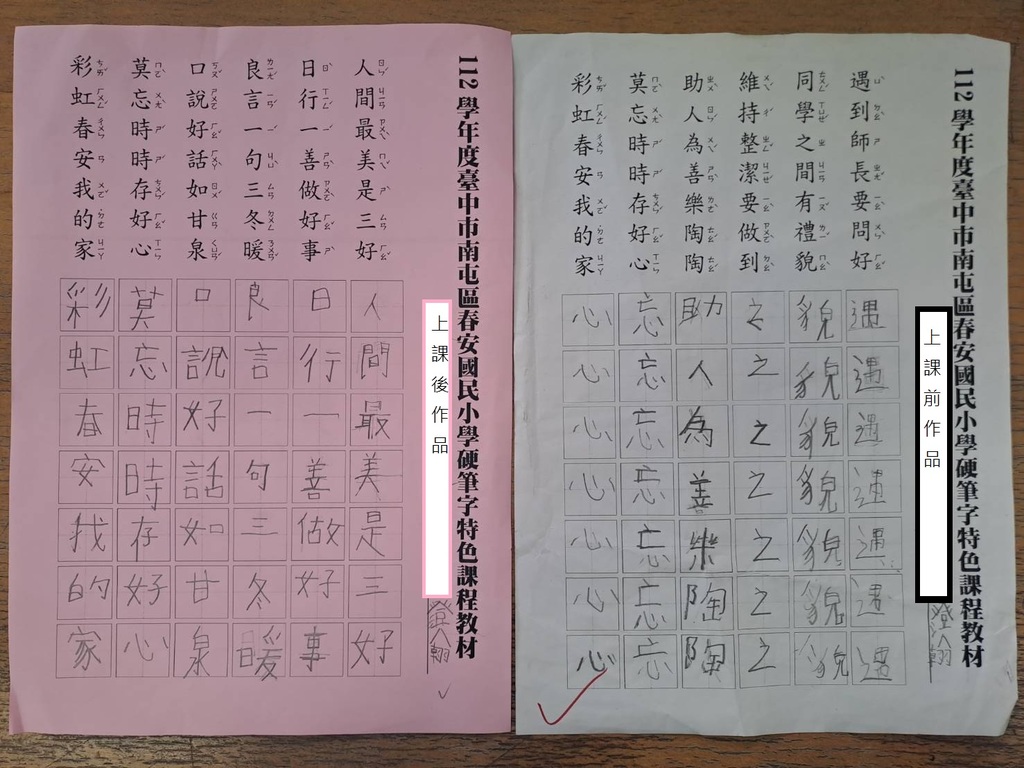 112 學年度臺中市南屯區春安國民小學硬筆字特色課程教材
上課後作品
人間最美是三好
日行一善做好事
良言一句三冬暖
口說好話如甘泉
莫忘時時存好心
彩虹春安我的家
人間最美是三好
日行一善做好事
良言一句三冬暖
口說好話如甘泉
莫忘時時存好心
彩虹春安我的家
112 學年度臺中市南屯區春安國民小學硬筆字特色課程教材
上課前作品
遇到師長要問好
同學之間有禮貌
維持整潔要做到
助人為善樂陶陶
莫忘時時存好心
彩虹春安我的家
遇遇遇遇遇遇遇
貌貌貌貌貌貌貌
之之之之之之之
助人為善樂陶陶
忘忘忘忘忘忘忘
心心心心心心心